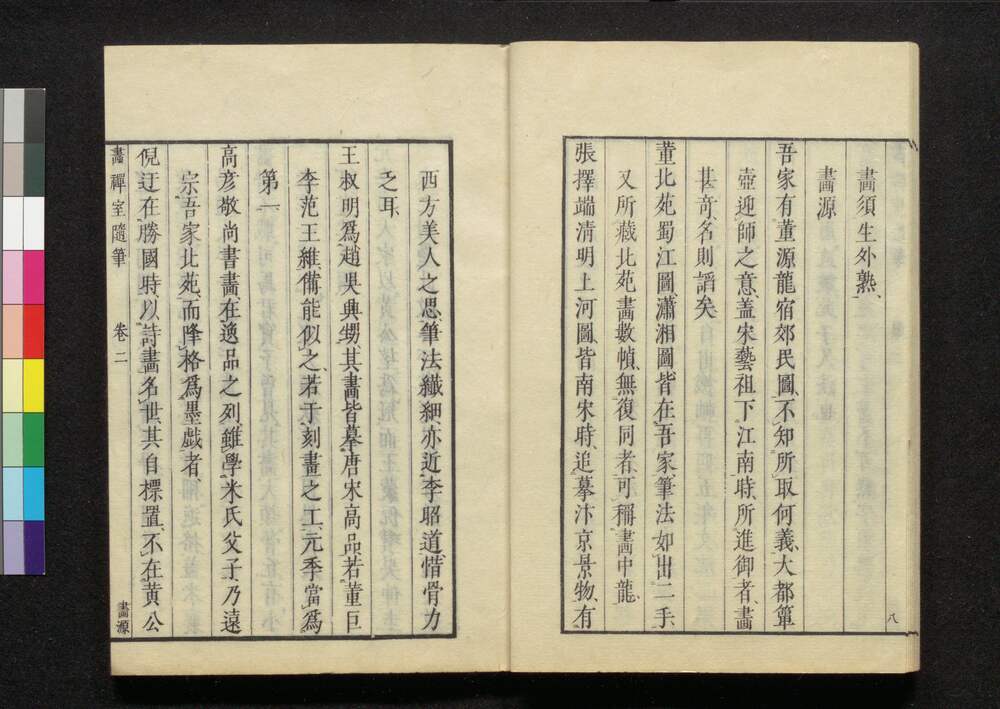 畫須生外熟、
畫源
吾家有董源龍宿郊民圖、不知所取何義、大都簞
壺迎師之意、蓋宋藝祖下江南時、所進御者、畫
甚奇、名則謟矣
董北苑蜀江圖、瀟湘圖、皆在吾家、筆法如出二手、
又所藏北苑畫數幀、無復同者、可稱畫中龍、
張擇端清明上河圖、皆南宋時、追摹汴京景物、有
八
西方美人之思、筆法纖細、亦近李昭道、惜骨力
乏耳、
王叔明爲趙吳興甥、其畫皆摹唐宋高品、若董巨
李范王維備能似之、若于刻畫之工、元季當爲
第一
高彦敬尚書畫、在逸品之列、雖學米氏父子、乃遠
宗吾家北苑、而降格爲墨戲者、
倪迂在勝國時、以詩畫名世、其自標置、不在黃公
畫禪室隨筆 卷二 畫源